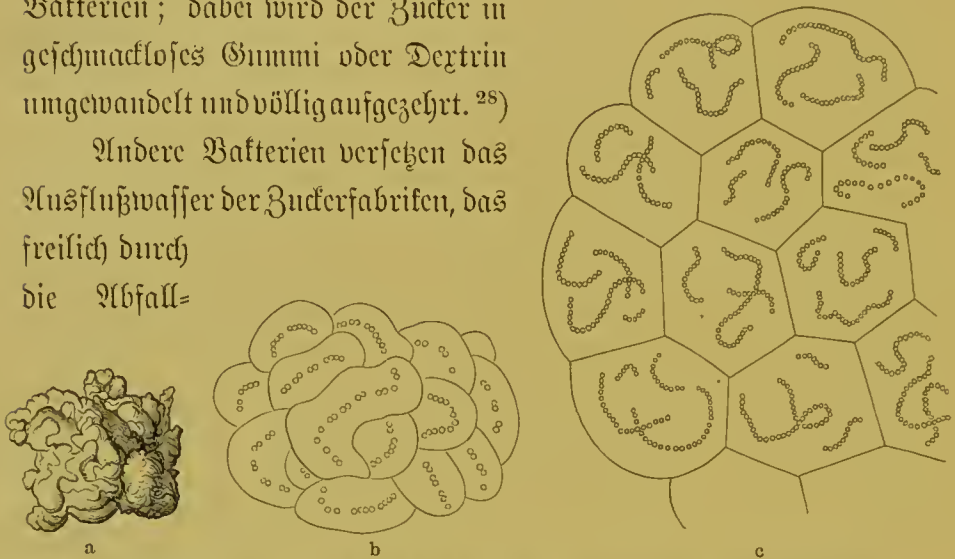 Bakterien; dabei wird der Zucker in
geschmackloses Gummi oder Dextrin
umgewandelt und völlig aufgezehrt. 28)
Andere Bakterien versetzen das
Ausflußwasser der Zuckerfabriken, das
freilich durch
die Abfall=
a
b
c